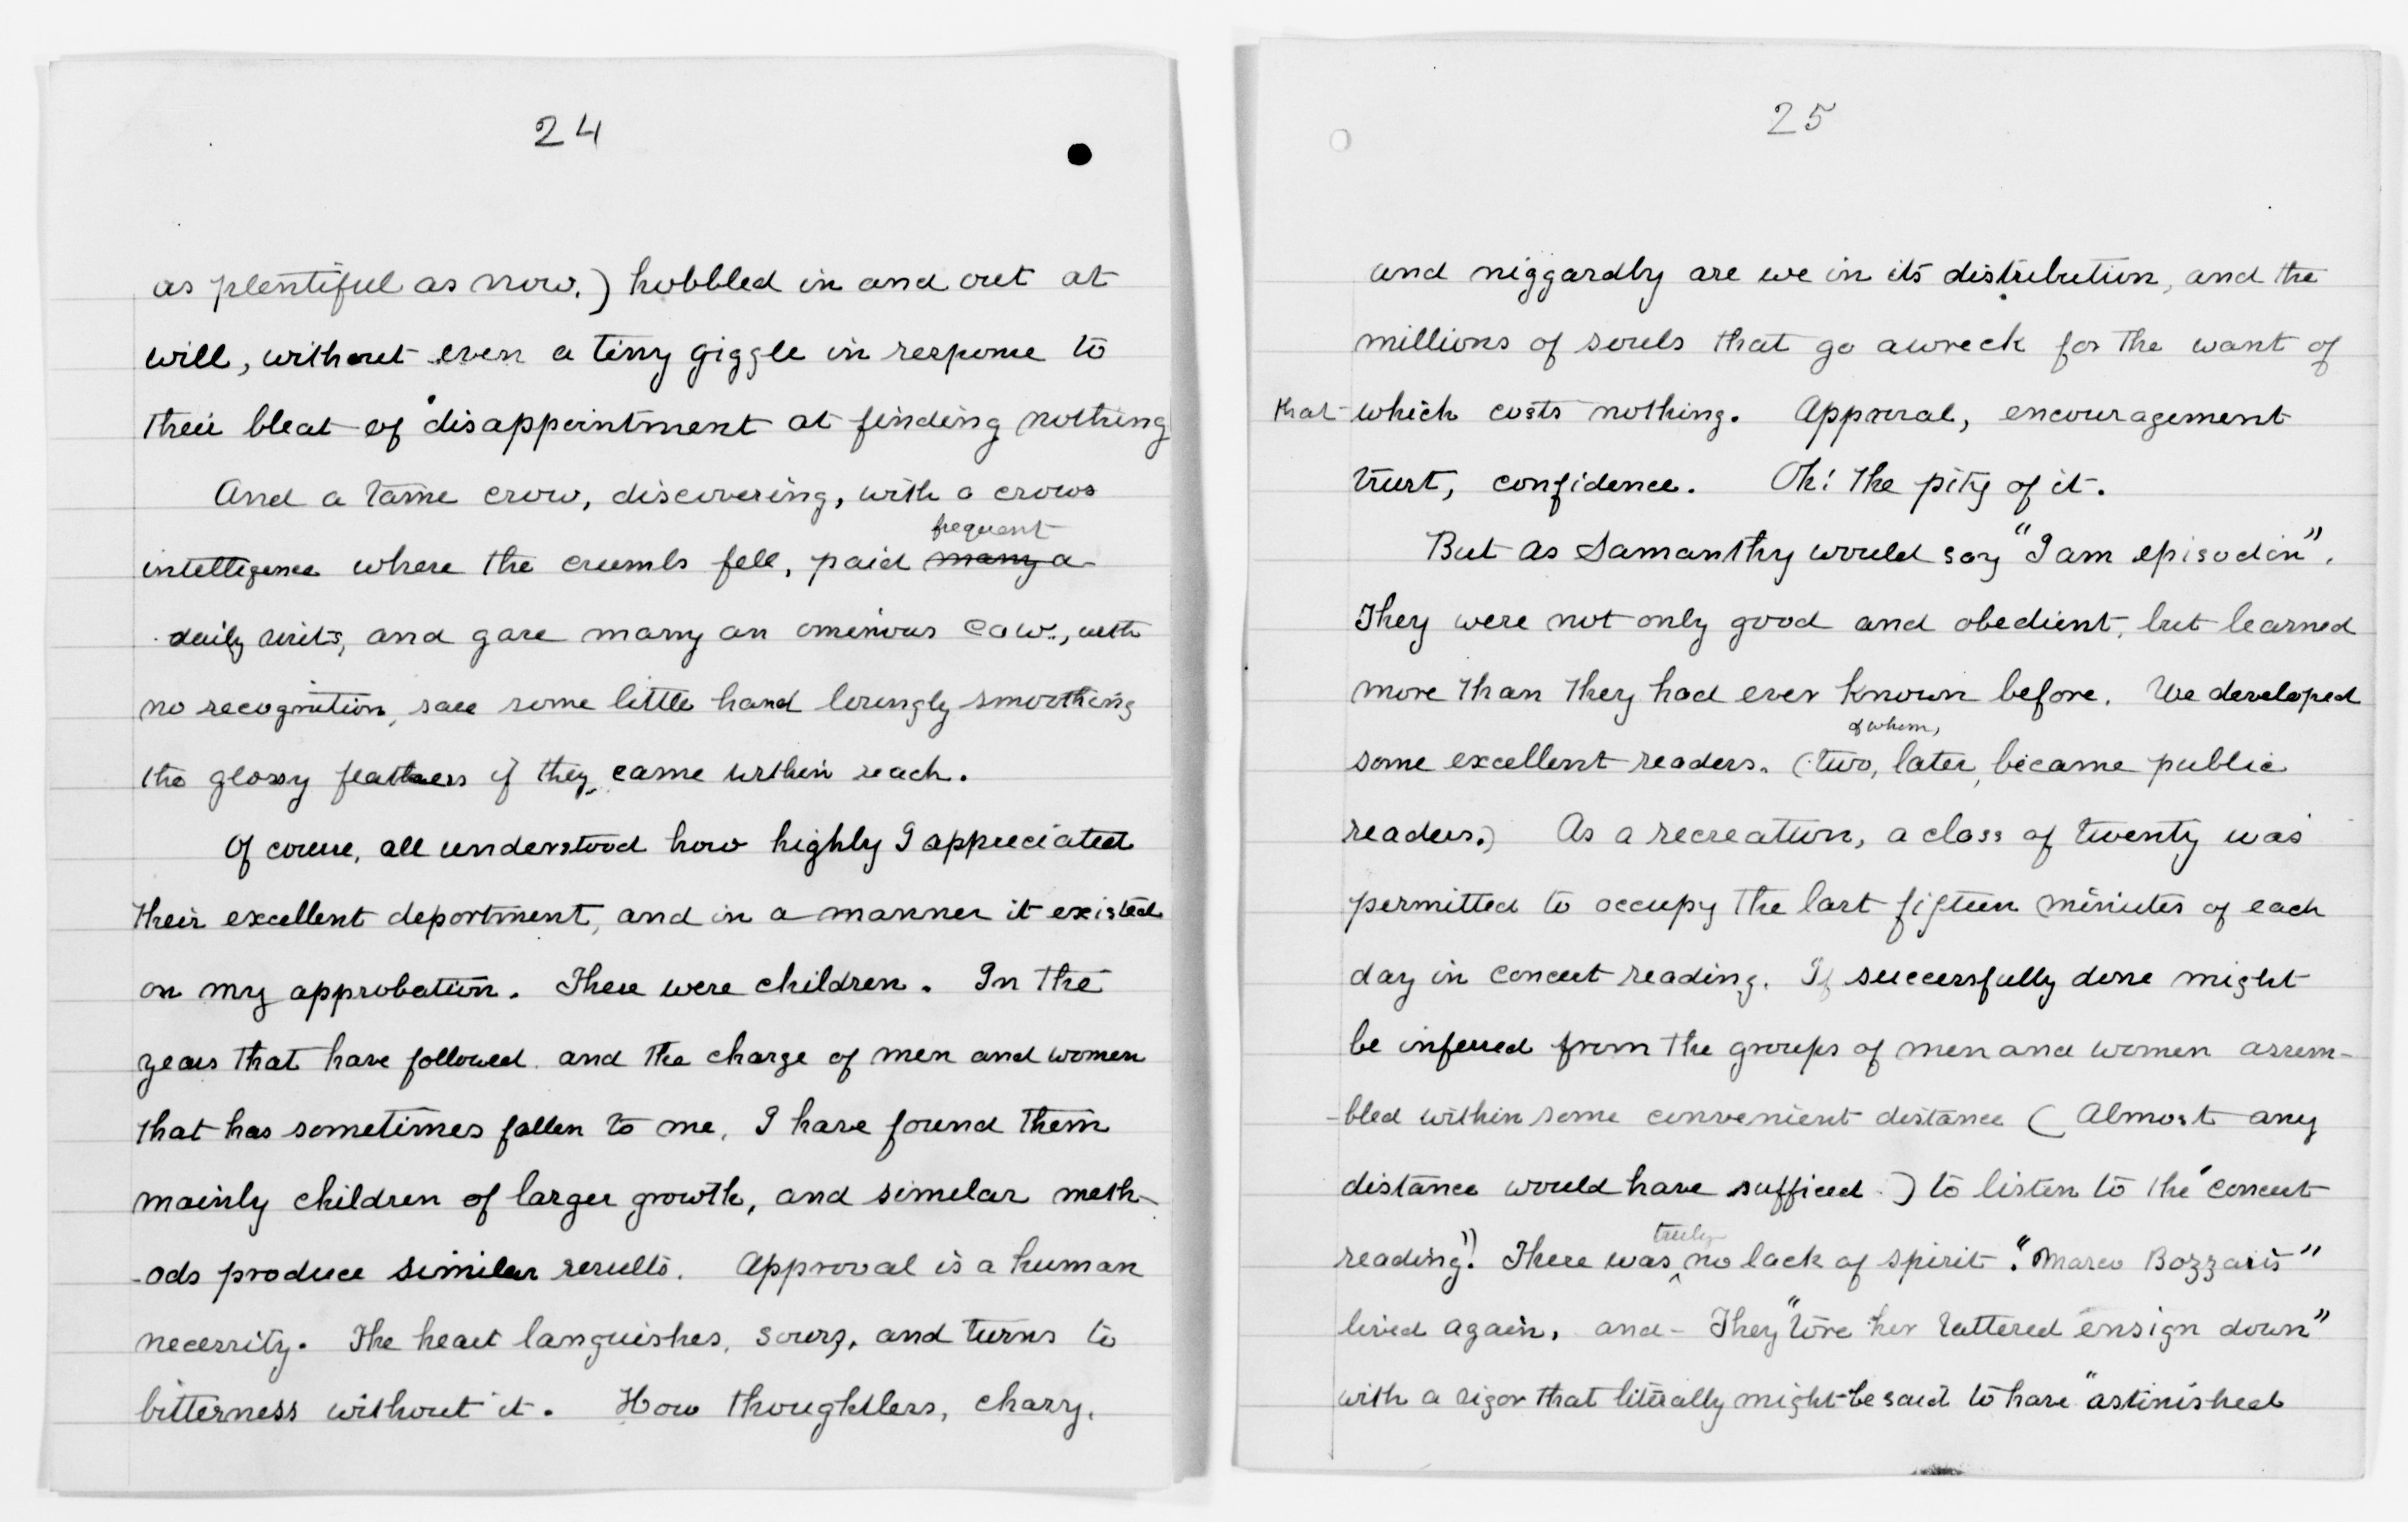 24
as plentiful as now.) hobbled in and out at
will, without even a tiny giggle in response to
their bleat of disappointment at finding nothing
And a tame crow, discovering, with a crows
frequent
intelligence where the crumbs fell, paid many a
daily visits, and gave many an ominous caw., with
no recognition, save some little hand lovingly smoothing
the glossy feathers if they came within reach.
Of course, all understood how highly I appreciated
their excellent deportment, and in a manner it existed
on my approbation. These were children. In the
years that have followed and the charge of men and women
that has sometimes fallen to me, I have found them
mainly children of larger growth, and similar meth-
-ods produce similar results. Approval is a human
necessity. The heart languishes, sours, and turns to
bitterness without it. How thoughtless, chary,
25
and niggardly are we in its distribution, and the
millions of souls that go awreck for the want of
that which costs nothing. Approval, encouragement
trust, confidence. Oh! the pity of it.
But as Samanthy would say "I am episodin".
They were not only good and obedient, but learned
more than they had ever known before. We developed
of whom,
some excellent readers. (two, later, became public
readers.) As a recreation, a class of twenty was
permitted to occupy the last fifteen minutes of each
day in concert reading. If successfully done might
be inferred from the groups of men and women assem-
-bled within some convenient distance (Almost any
distance would have sufficed.) to listen to the "concert
truly
reading"! There was no lack of spirit. "Marco Bozzaris"
lived again, and - They "tore her tattered ensign down"
with a vigor that literally might be said to have "astinished